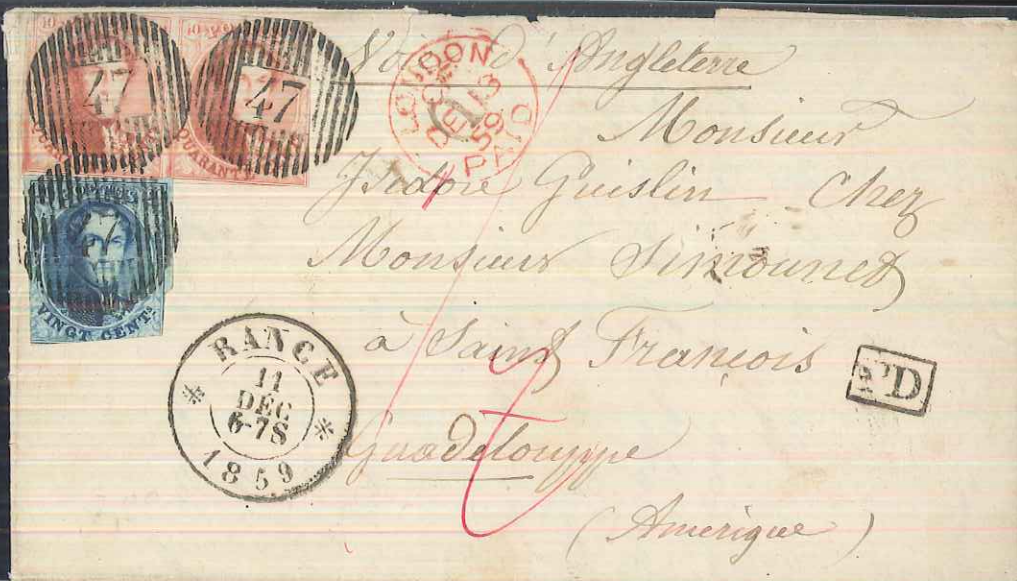 47
47
QUARANTE
QUARANTE
47
VINGT CENTS
LONDON
DE 13
59
PAID
Voie d'Angleterre
Monsieur
Isidore Guislin Chez
Monsieur Simounet
à Saint François
Guadelouppe
(Amérique)
RANCE
11
DÉC
6-7S
1859
PD